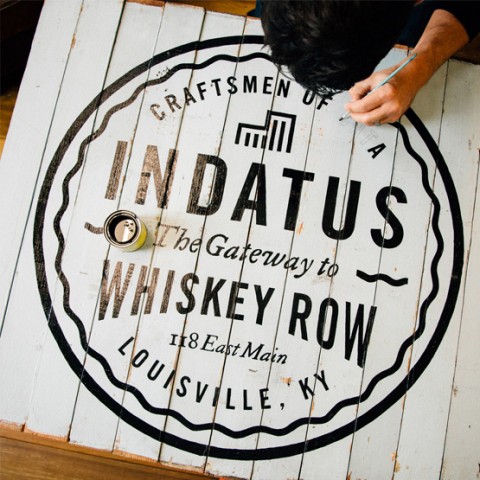 CRAFTSMEN OF
INDATUS
The Gateway to
WHISKEY ROW
118 East Main
LOUISVILLE, KY